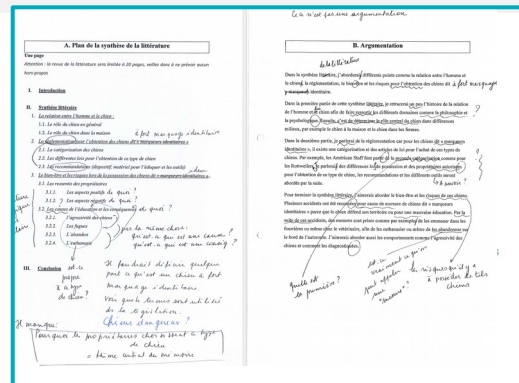 A. Plan de la synthèse de la littérature
Une page
Attention : la revue de la littérature sera limitée à 20 pages, veillez donc à ne prévoir aucun
hors-propos
I. Introduction
II. Synthèse littéraire
1. La relation entre l'homme et le chien :
1.1. Le rôle du chien en général
1.2. Le rôle du chien dans la maison
à fort marquage identitaire
2. La réglementation pour l'obtention des chiens dit « marqueurs identitaires »
2.1. La catégorisation du chien
2.2. Les différentes lois pour l'obtention de ce type de chien
2.3. Les recommandations (dispositif, matériel pour l'éduquer et les outils)
3. Le bien-être et les risques lors de la possession des chiens dit « marqueurs identitaires ».
3.1. Les ressentis des propriétaires
3.1.1. Les aspects positifs de quoi ?
3.1.2. Les aspects négatifs de quoi ?
3.2. Les causes de l'éducation et les conséquences de quoi ?
3.2.1. L'agressivité des chiens
3.2.2. Les fugues
3.2.3. L'abandon
3.2.4. L'euthanasie
pas la même chose :
qu'est-ce qui est une cause ?
qu'est-ce qui est une conséq ?
III. Conclusion
est-ce
propre
à ce type
de chien ?
Il faudrait définir quelque
part ce qu'est un chien à fort
marquage identitaire
Voir quels termes sont utilisés
de la législation.
Chiens dangereux ?
Il manque :
Pourquoi les propriétaires choisissent ce type
de chien
= thème central du mémoire
Ce n'est pas une argumentation.
B. Argumentation
de la littérature
Dans la synthèse littéraire, j'aborderai différents points comme la relation entre l'homme et
le chien, la réglementation, le bien-être et les risques pour l'obtention des chiens dit à fort marquage
« marqueurs identitaires ».
Dans la première partie de cette synthèse littéraire, je retracerai un peu l'histoire de la relation
de l'homme et le chien afin de faire ressortir les différents domaines comme la philosophie et ?
la psychologique. Ensuite, c'est de déterminer le rôle central du chien dans différents
milieux, par exemple le chien à la maison et le chien dans les fermes.
Dans la deuxième partie, je parlerai de la réglementation car pour les chiens dit « marqueurs
identitaires », il existe une catégorisation et des articles de loi pour l'achat de ces types de
chiens. Par exemple, les American Staff font partie de la seconde catégorisation comme pour
les Rottweiler. Je parlerai des différentes lois de possession et des propriétaires autorisés
pour l'obtention de ce type de chien, les recommandations et les différents outils seront
abordés par la suite.
Pour terminer la synthèse littéraire, j'aimerais aborder le bien-être et les risques de ces chiens.
Plusieurs accidents ont été recensés pour cause de morsure de chiens dit « marqueurs
identitaires » parce que le chien défend son territoire ou pour une mauvaise éducation. Par la
suite de ces accidents, des mesures sont prises comme par exemples de les emmener dans des
fourrières ou même chez le vétérinaire, afin de les euthanasier ou même de les abandonner sur
le bord de l'autoroute. J'aimerais aborder aussi les comportements comme l'agressivité des
chiens et comment les diagnostiquer.
quelle est
la première ?
est-ce
vraiment ce qu'on
peut appeler
une
"mesure" ?
les risques qu'il y a
à posséder de tels
chiens